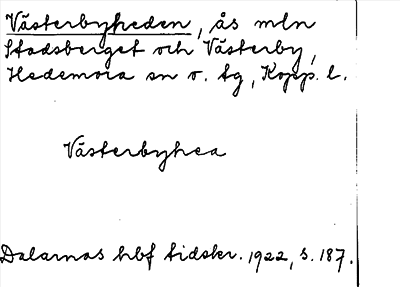 Västerbyheden, ås mln
Stadsberget och Västerby,
Hedemora sn o. tg, Kopp. l.
Västerbyhea
Dalarnas hbf tidskr. 1922, s. 187.